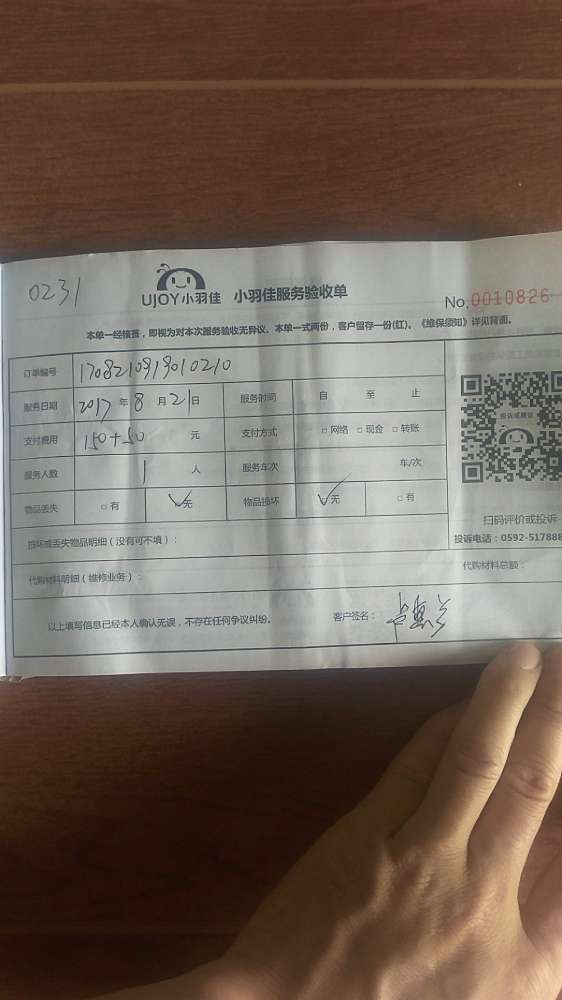 0231
UJOY小羽佳 小羽佳服务验收单
No.0010826
本单一经核签，即视为对本次服务验收无异议。本单一式两份，客户留存一份(红)。《维保须知》详见背面。
订单编号 170821091901 0210
服务日期 2017 年 8 月 21 日 服务时间 自 至 止
支付费用 150+50 元 支付方式 □ 网络 □ 现金 □ 转账
服务人数 1 人 服务车次 车/次
物品丢失 □ 有 ✓无 物品损坏 ✓无 □ 有
投诉或建议
扫码评价或投诉
投诉电话：0592-517888
损坏或丢失物品明细（没有可不填）：
代购材料明细（维修业务）： 代购材料总额：
以上填写信息已经本人确认无误，不存在任何争议纠纷。 客户签名：